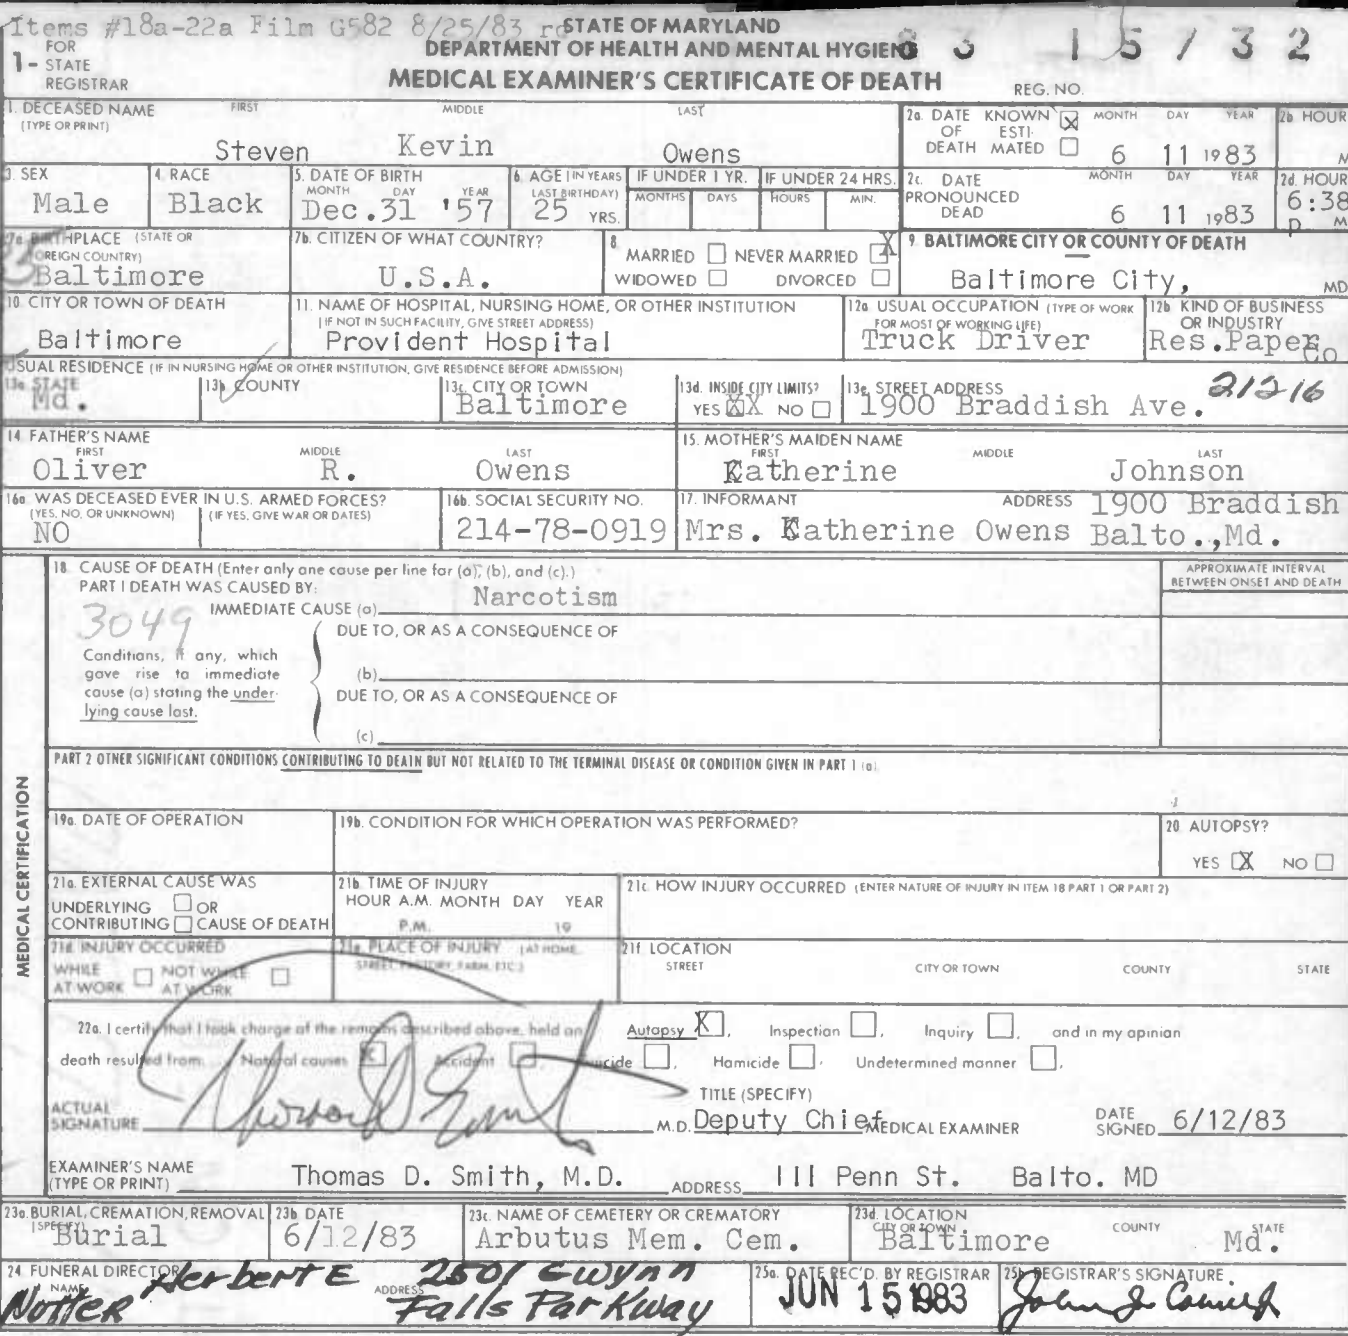 Items #18a-22a Film G582 8/25/83 rc
STATE OF MARYLAND
DEPARTMENT OF HEALTH AND MENTAL HYGIENE
MEDICAL EXAMINER'S CERTIFICATE OF DEATH
1- FOR STATE REGISTRAR
83 15732
REG. NO.
1. DECEASED NAME (TYPE OR PRINT) FIRST MIDDLE LAST
Steven Kevin Owens
2a. DATE OF DEATH KNOWN X ESTIMATED MONTH DAY YEAR
6 11 1983
2b HOUR M
3. SEX
Male
4. RACE
Black
5. DATE OF BIRTH MONTH DAY YEAR
Dec.31 '57
6. AGE (IN YEARS LAST BIRTHDAY)
25 YRS.
IF UNDER 1 YR. MONTHS DAYS
IF UNDER 24 HRS. HOURS MIN.
2c. DATE PRONOUNCED DEAD MONTH DAY YEAR
6 11 1983
2d. HOUR
6:38 P M
7a BIRTHPLACE (STATE OR FOREIGN COUNTRY)
Baltimore
7b. CITIZEN OF WHAT COUNTRY?
U.S.A.
8. MARRIED NEVER MARRIED X
WIDOWED DIVORCED
9. BALTIMORE CITY OR COUNTY OF DEATH
Baltimore City, MD
10. CITY OR TOWN OF DEATH
Baltimore
11. NAME OF HOSPITAL, NURSING HOME, OR OTHER INSTITUTION
(IF NOT IN SUCH FACILITY, GIVE STREET ADDRESS)
Provident Hospital
12a USUAL OCCUPATION (TYPE OF WORK FOR MOST OF WORKING LIFE)
Truck Driver
12b KIND OF BUSINESS OR INDUSTRY
Res.Paper Co
USUAL RESIDENCE (IF IN NURSING HOME OR OTHER INSTITUTION, GIVE RESIDENCE BEFORE ADMISSION)
13a STATE
Md.
13b COUNTY
13c. CITY OR TOWN
Baltimore
13d. INSIDE CITY LIMITS?
YES XX NO
13e. STREET ADDRESS
1900 Braddish Ave. 21216
14. FATHER'S NAME FIRST MIDDLE LAST
Oliver R. Owens
15. MOTHER'S MAIDEN NAME FIRST MIDDLE LAST
Katherine Johnson
16a. WAS DECEASED EVER IN U.S. ARMED FORCES?
(YES, NO, OR UNKNOWN) (IF YES, GIVE WAR OR DATES)
NO
16b. SOCIAL SECURITY NO.
214-78-0919
17. INFORMANT ADDRESS
Mrs. Katherine Owens 1900 Braddish Balto.,Md.
MEDICAL CERTIFICATION
18. CAUSE OF DEATH (Enter only one cause per line for (a), (b), and (c).)
PART I DEATH WAS CAUSED BY:
IMMEDIATE CAUSE (a) Narcotism
3049
APPROXIMATE INTERVAL BETWEEN ONSET AND DEATH
DUE TO, OR AS A CONSEQUENCE OF
Conditions, if any, which
gave rise to immediate
cause (a) stating the under-
lying cause last.
(b)
DUE TO, OR AS A CONSEQUENCE OF
(c)
PART 2 OTHER SIGNIFICANT CONDITIONS CONTRIBUTING TO DEATH BUT NOT RELATED TO THE TERMINAL DISEASE OR CONDITION GIVEN IN PART 1 (a)
19a. DATE OF OPERATION
19b. CONDITION FOR WHICH OPERATION WAS PERFORMED?
20 AUTOPSY?
YES X NO
21a. EXTERNAL CAUSE WAS
UNDERLYING OR
CONTRIBUTING CAUSE OF DEATH
21b. TIME OF INJURY
HOUR A.M. MONTH DAY YEAR
P.M. 19
21c. HOW INJURY OCCURRED (ENTER NATURE OF INJURY IN ITEM 18 PART 1 OR PART 2)
21d INJURY OCCURRED
WHILE AT WORK NOT WHILE AT WORK
21e. PLACE OF INJURY (AT HOME, STREET, FACTORY, FARM, ETC.)
21f LOCATION
STREET CITY OR TOWN COUNTY STATE
22a. I certify that I took charge of the remains described above, held an Autopsy X, Inspection, Inquiry, and in my opinion
death resulted from: Natural causes X Accident, Suicide, Homicide, Undetermined manner.
ACTUAL SIGNATURE
TITLE (SPECIFY)
M.D. Deputy Chief MEDICAL EXAMINER
DATE SIGNED 6/12/83
EXAMINER'S NAME (TYPE OR PRINT) Thomas D. Smith, M.D. ADDRESS 111 Penn St. Balto. MD
23a. BURIAL, CREMATION, REMOVAL (SPECIFY)
Burial
23b DATE
6/12/83
23c. NAME OF CEMETERY OR CREMATORY
Arbutus Mem. Cem.
23d. LOCATION CITY OR TOWN COUNTY STATE
Baltimore Md.
24 FUNERAL DIRECTOR NAME ADDRESS
Herbert E Nutter 2501 Gwynn Falls Parkway
25a. DATE REC'D. BY REGISTRAR
JUN 15 1983
25b REGISTRAR'S SIGNATURE